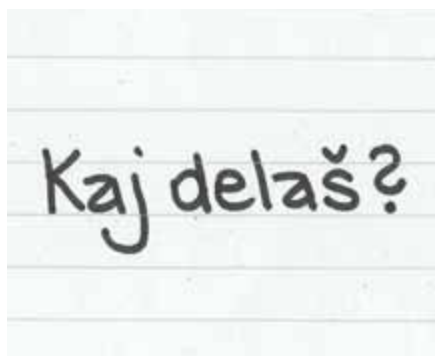 Kaj delaš?